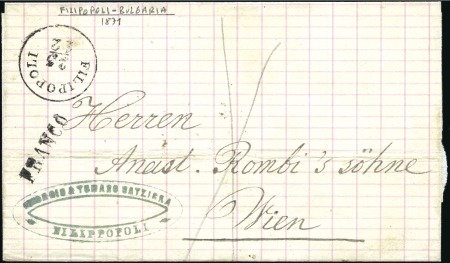 FILIPOPOLI-BULGARIA
1871
FILIPOPOLI
FRANCO
Herren
Aneist. Rombi's söhne
Wien
& TOMASO
FILIPPOPOLI